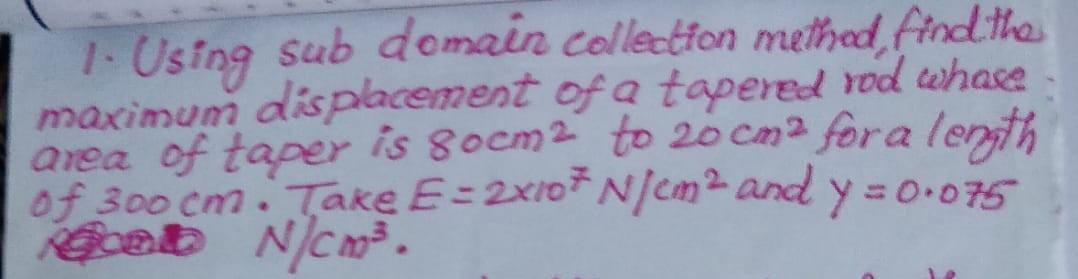 1. Using sub domain collection method, find the
maximum displacement of a tapered rod whase
area of taper is 80cm2 to 20 cm2 for a length
of 300 cm. Take E = 2x10⁷ N/cm2 and y = 0.075
N/cm³.